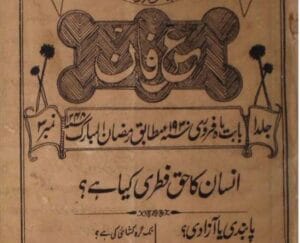 عرفان
جلد ۱
بابت ماہ فروری ۱۹۳۰ء مطابق رمضان المبارک ۱۳۴۸ھ
نمبر ۲
انسان کا حق فطری کیا ہے؟
پابندی یا آزادی؟